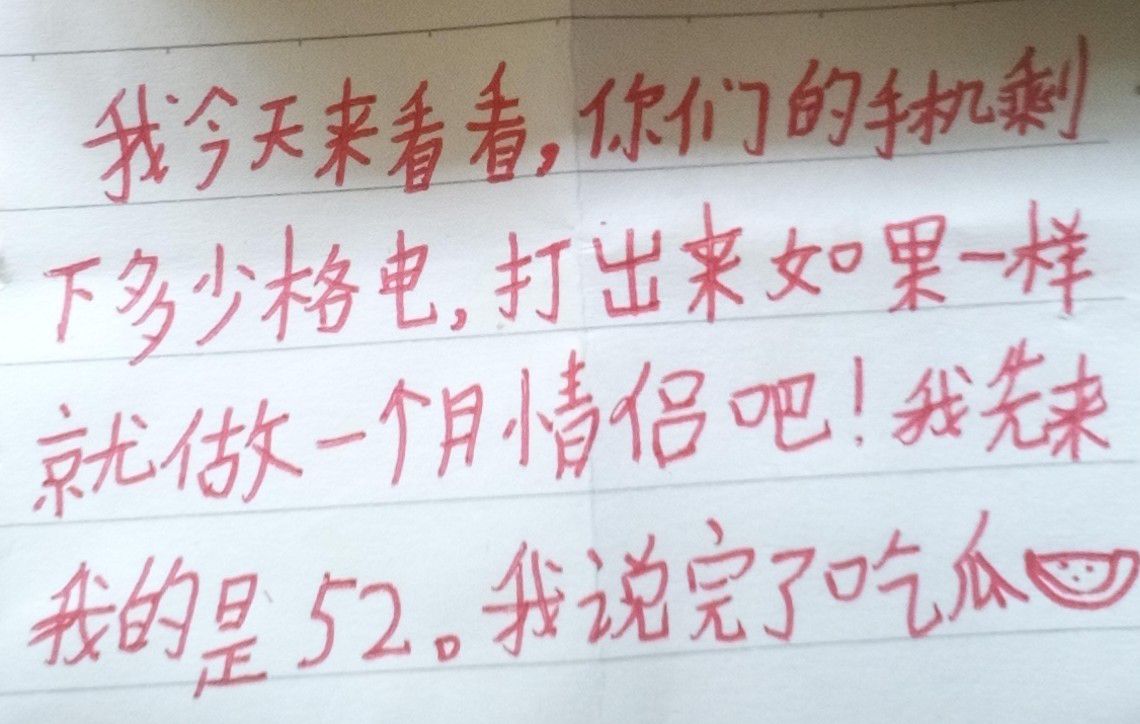 我今天来看看,你们的手机剩
下多少格电,打出来如果一样
就做一个月情侣吧!我先来
我的是52。我说完了吃瓜